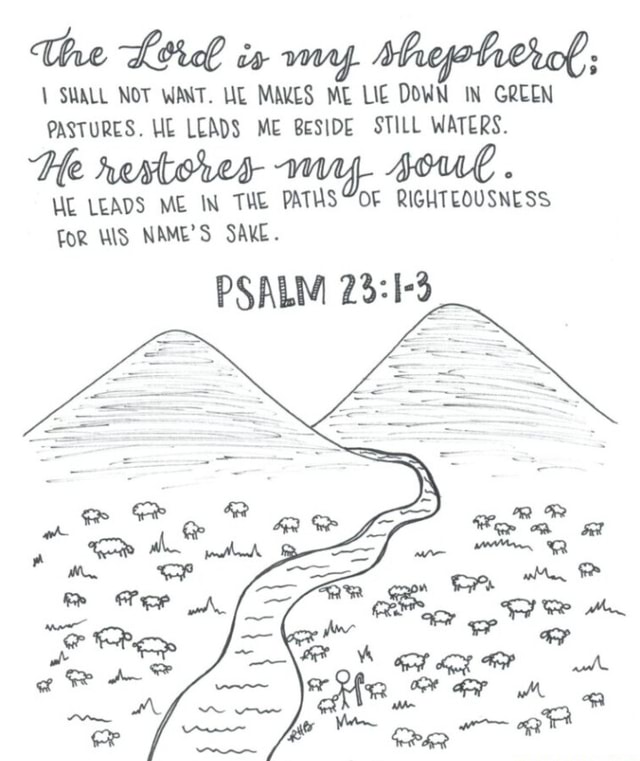 The Lord is my shepherd;
I SHALL NOT WANT. HE MAKES ME LIE DOWN IN GREEN
PASTURES. HE LEADS ME BESIDE STILL WATERS.
He restores my soul.
HE LEADS ME IN THE PATHS OF RIGHTEOUSNESS
FOR HIS NAME'S SAKE.
PSALM 23:1-3